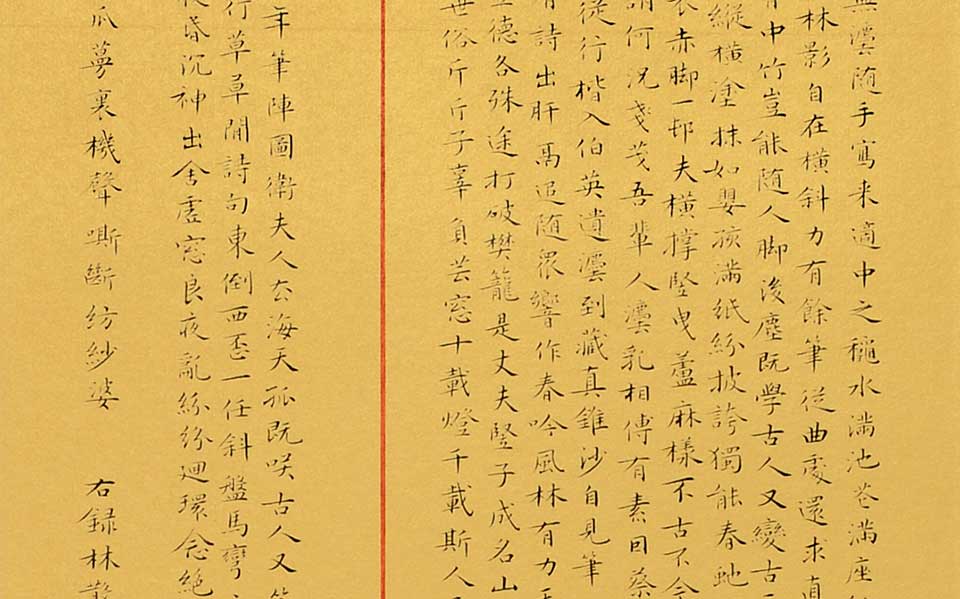 無灋随手寫来適中之穐水滿池花滿座
林影自在橫斜力有餘筆従曲處還求直
中竹豈能随人脚後塵既學古人又變古
縱橫塗抹如嬰孩滿紙紛披誇獨能春虵
衣赤脚一邨夫橫撑竪曳蘆麻樣不古不今
謂何況戔戔吾輩人灋乳相傳有素因蔡
從行楷入伯英遺灋到藏真錐沙自見筆
有詩出肝鬲追随眾響作春吟風林有力
德各殊途打破樊籠是丈夫竪子成名山
世俗斤斤子辜負芸窓十載燈千載斯人
年筆陣圖衛夫人去海天孤既咲古人又
行草草閒詩句東倒西歪一任斜盤馬彎
昏沉神出舍虛窓良夜亂絲紛迴環念絕
爪夢裏機聲嘶斷紡紗婆 右録林散